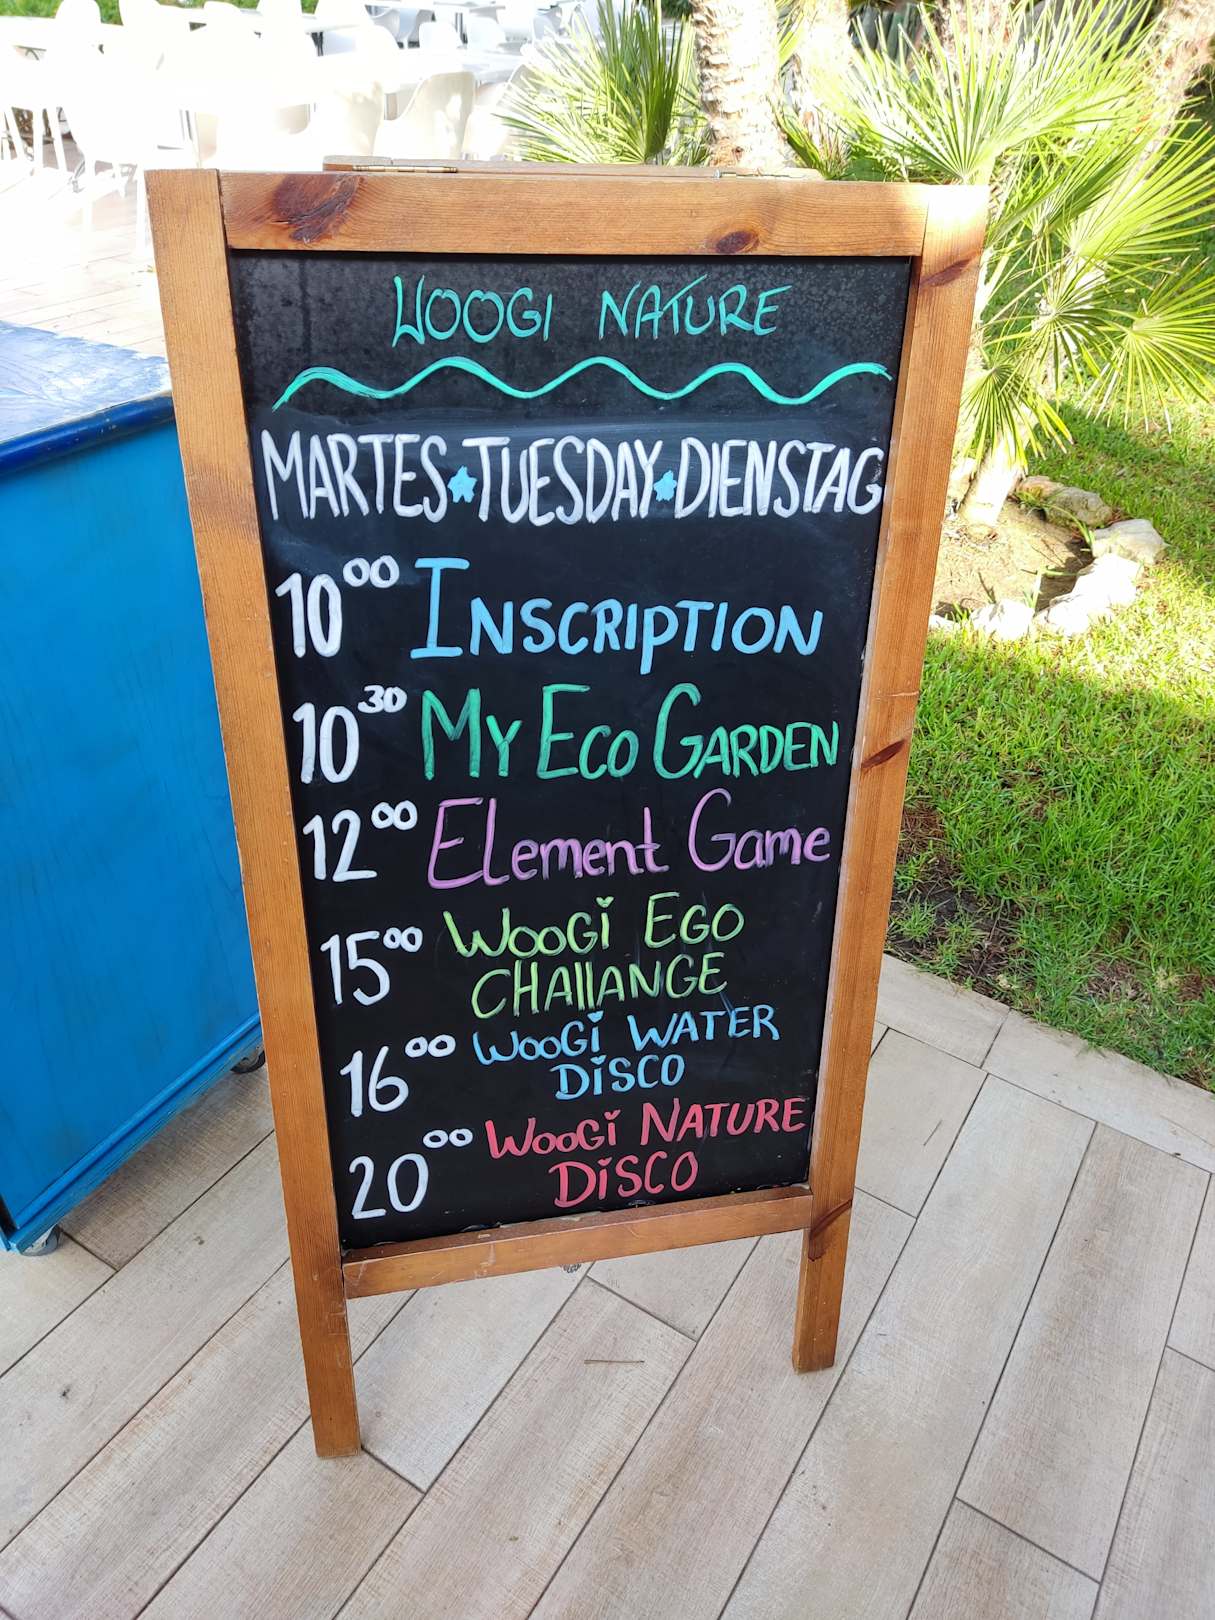 WOOGI NATURE
MARTES★TUESDAY★DIENSTAG
10⁰⁰ INSCRIPTION
10³⁰ MY ECO GARDEN
12⁰⁰ Element Game
15⁰⁰ WOOGi EGO
CHAllANGE
16⁰⁰ WOOGi WATER
DiSCO
20⁰⁰ WOOGi NATURE
DiSCO